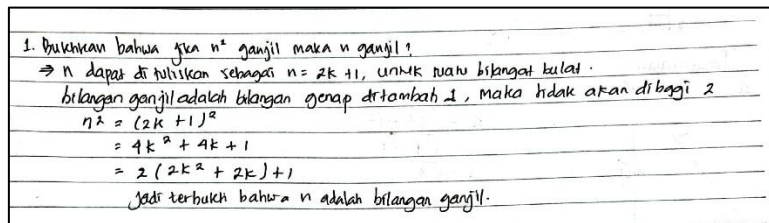 1. Buktikan bahwa jika n² ganjil maka n ganjil!
⇒ n dapat di tuliskan sebagai n = 2k + 1, untuk suatu bilangat bulat.
bilangan ganjil adalah bilangan genap ditambah 1, maka tidak akan dibagi 2
n² = (2k + 1)²
= 4k² + 4k + 1
= 2 (2k² + 2k) + 1
Jadi terbukti bahwa n adalah bilangan ganjil.